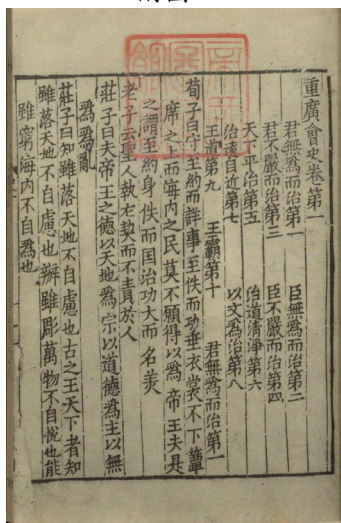 重廣會史卷第一
君無為而治第一　臣無為而治第二
君不嚴而治第三　臣不嚴而治第四
天下平治第五　治道清淨第六
治遠自近第七　以文為治第八
王道第九　王霸第十
君無為而治第一
荀子曰守至約而詳事至佚而功垂衣裳不下簟
席之上而海内之民莫不願得以為帝王夫是
之謂至約身佚而国治功大而名羙
老子云聖人執左契而不責於人
莊子曰夫帝王之德以天地為宗以道德為主以無
為為
莊子曰知雖落天地不自慮也古之王天下者知
雖落天地不自慮也辨雖彫萬物不自恱也能
雖窮海内不自為也